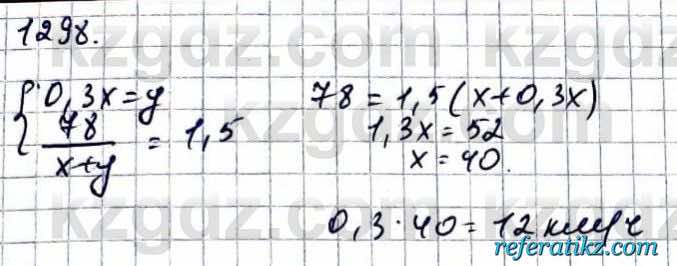 1298.
0,3x=y
78/(x+y) = 1,5
78 = 1,5(x+0,3x)
1,3x = 52
x = 40.
0,3·40 = 12 км/ч
kzgdz.com
referatikz.com